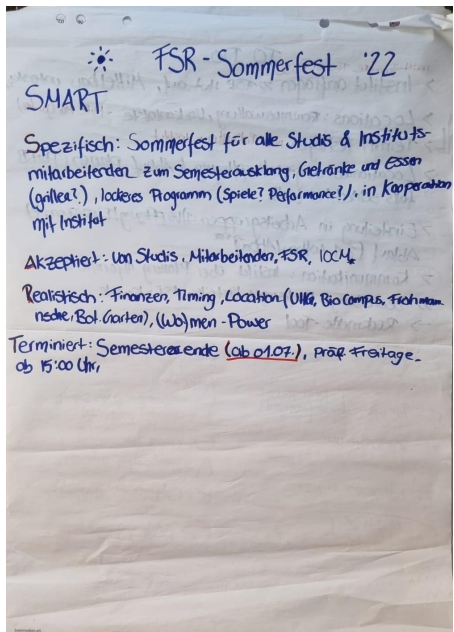 FSR - Sommerfest '22
SMART
Spezifisch: Sommerfest für alle Studis & Instituts-
mitarbeitenden zum Semesterausklang, Getränke und Essen
(grillen?), lockeres Programm (Spiele? Performance?), in Kooperation
mit Institut
Akzeptiert: Von Studis, Mitarbeitenden, FSR,
Realistisch: Finanzen, Timing, Location (UHG, Bio Campus, Frohmann-
sche, Bot. Garten), (Wo)men-Power
Terminiert: Semesterende (ab 01.07.), präf. Freitage
ab 15:00 Uhr,